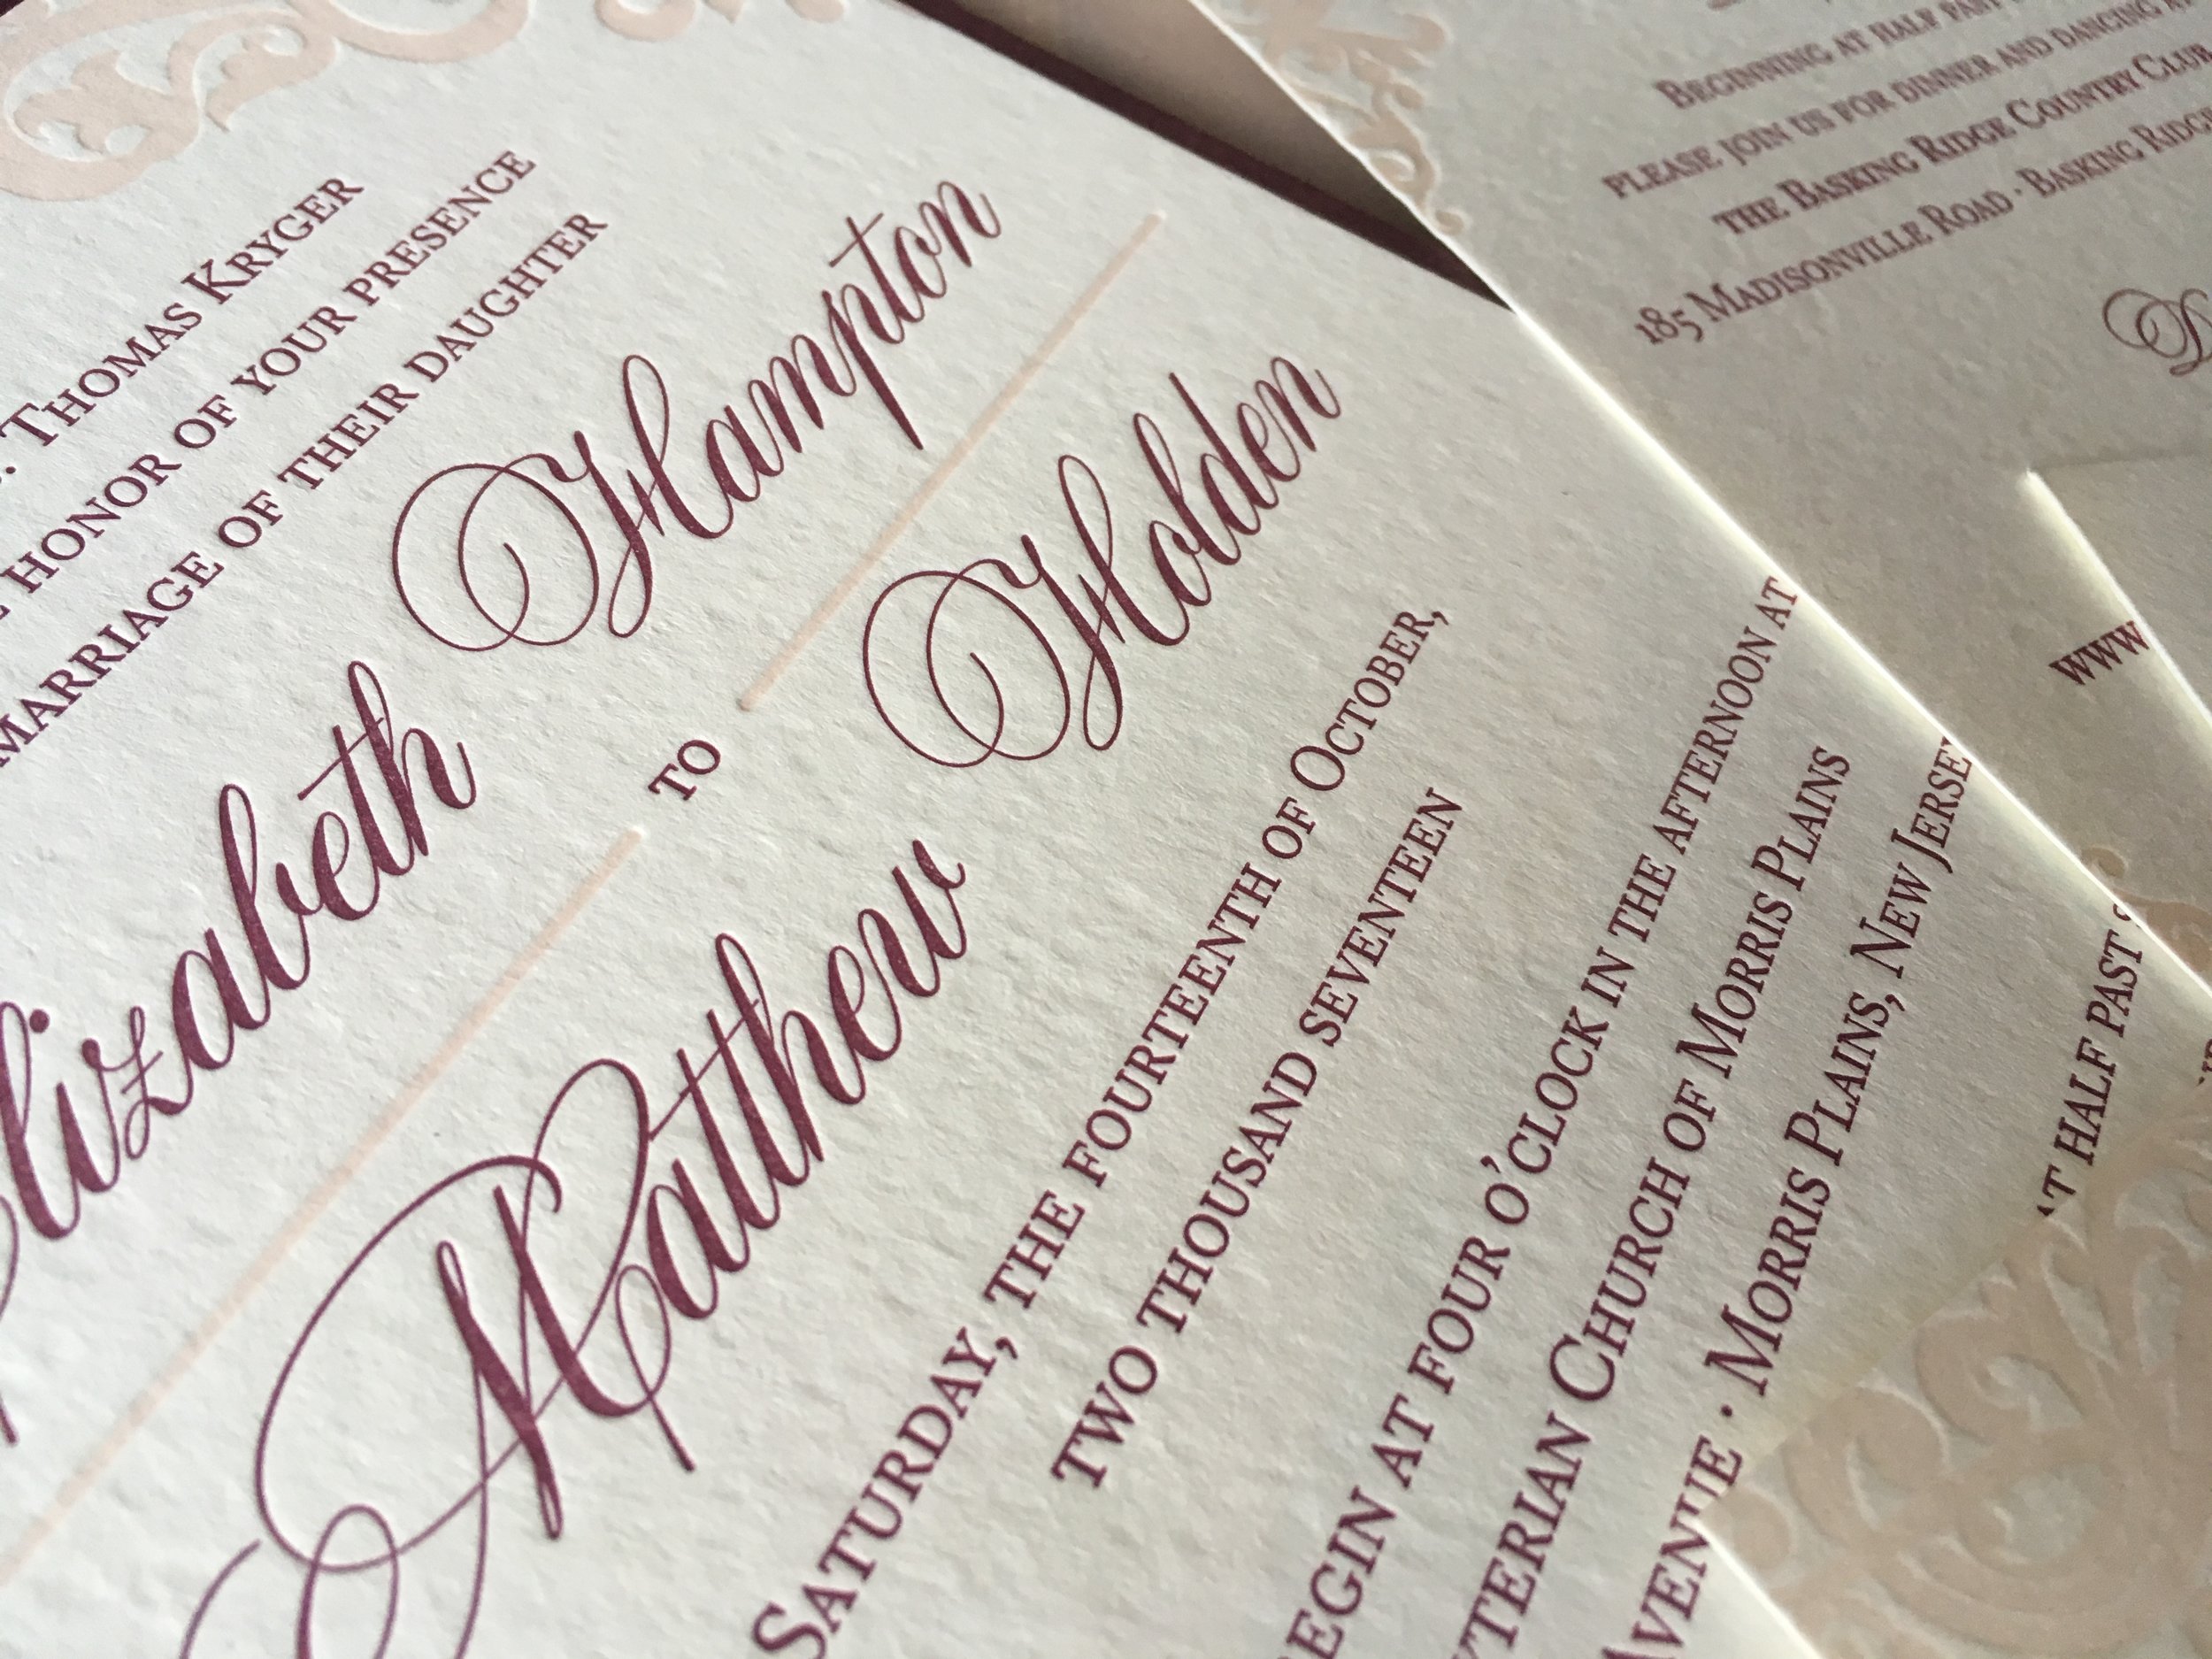 Thomas Kryger
honor of your presence
marriage of their daughter
Elizabeth Hampton
to
Matthew Holden
Saturday, the fourteenth of October,
two thousand seventeen
at four o'clock in the afternoon at
Church of Morris Plains
Avenue · Morris Plains, New
Beginning at half past
please join us for dinner and dancing
the Basking Ridge Country Club
185 Madisonville Road · Basking Ridge
www
at half past